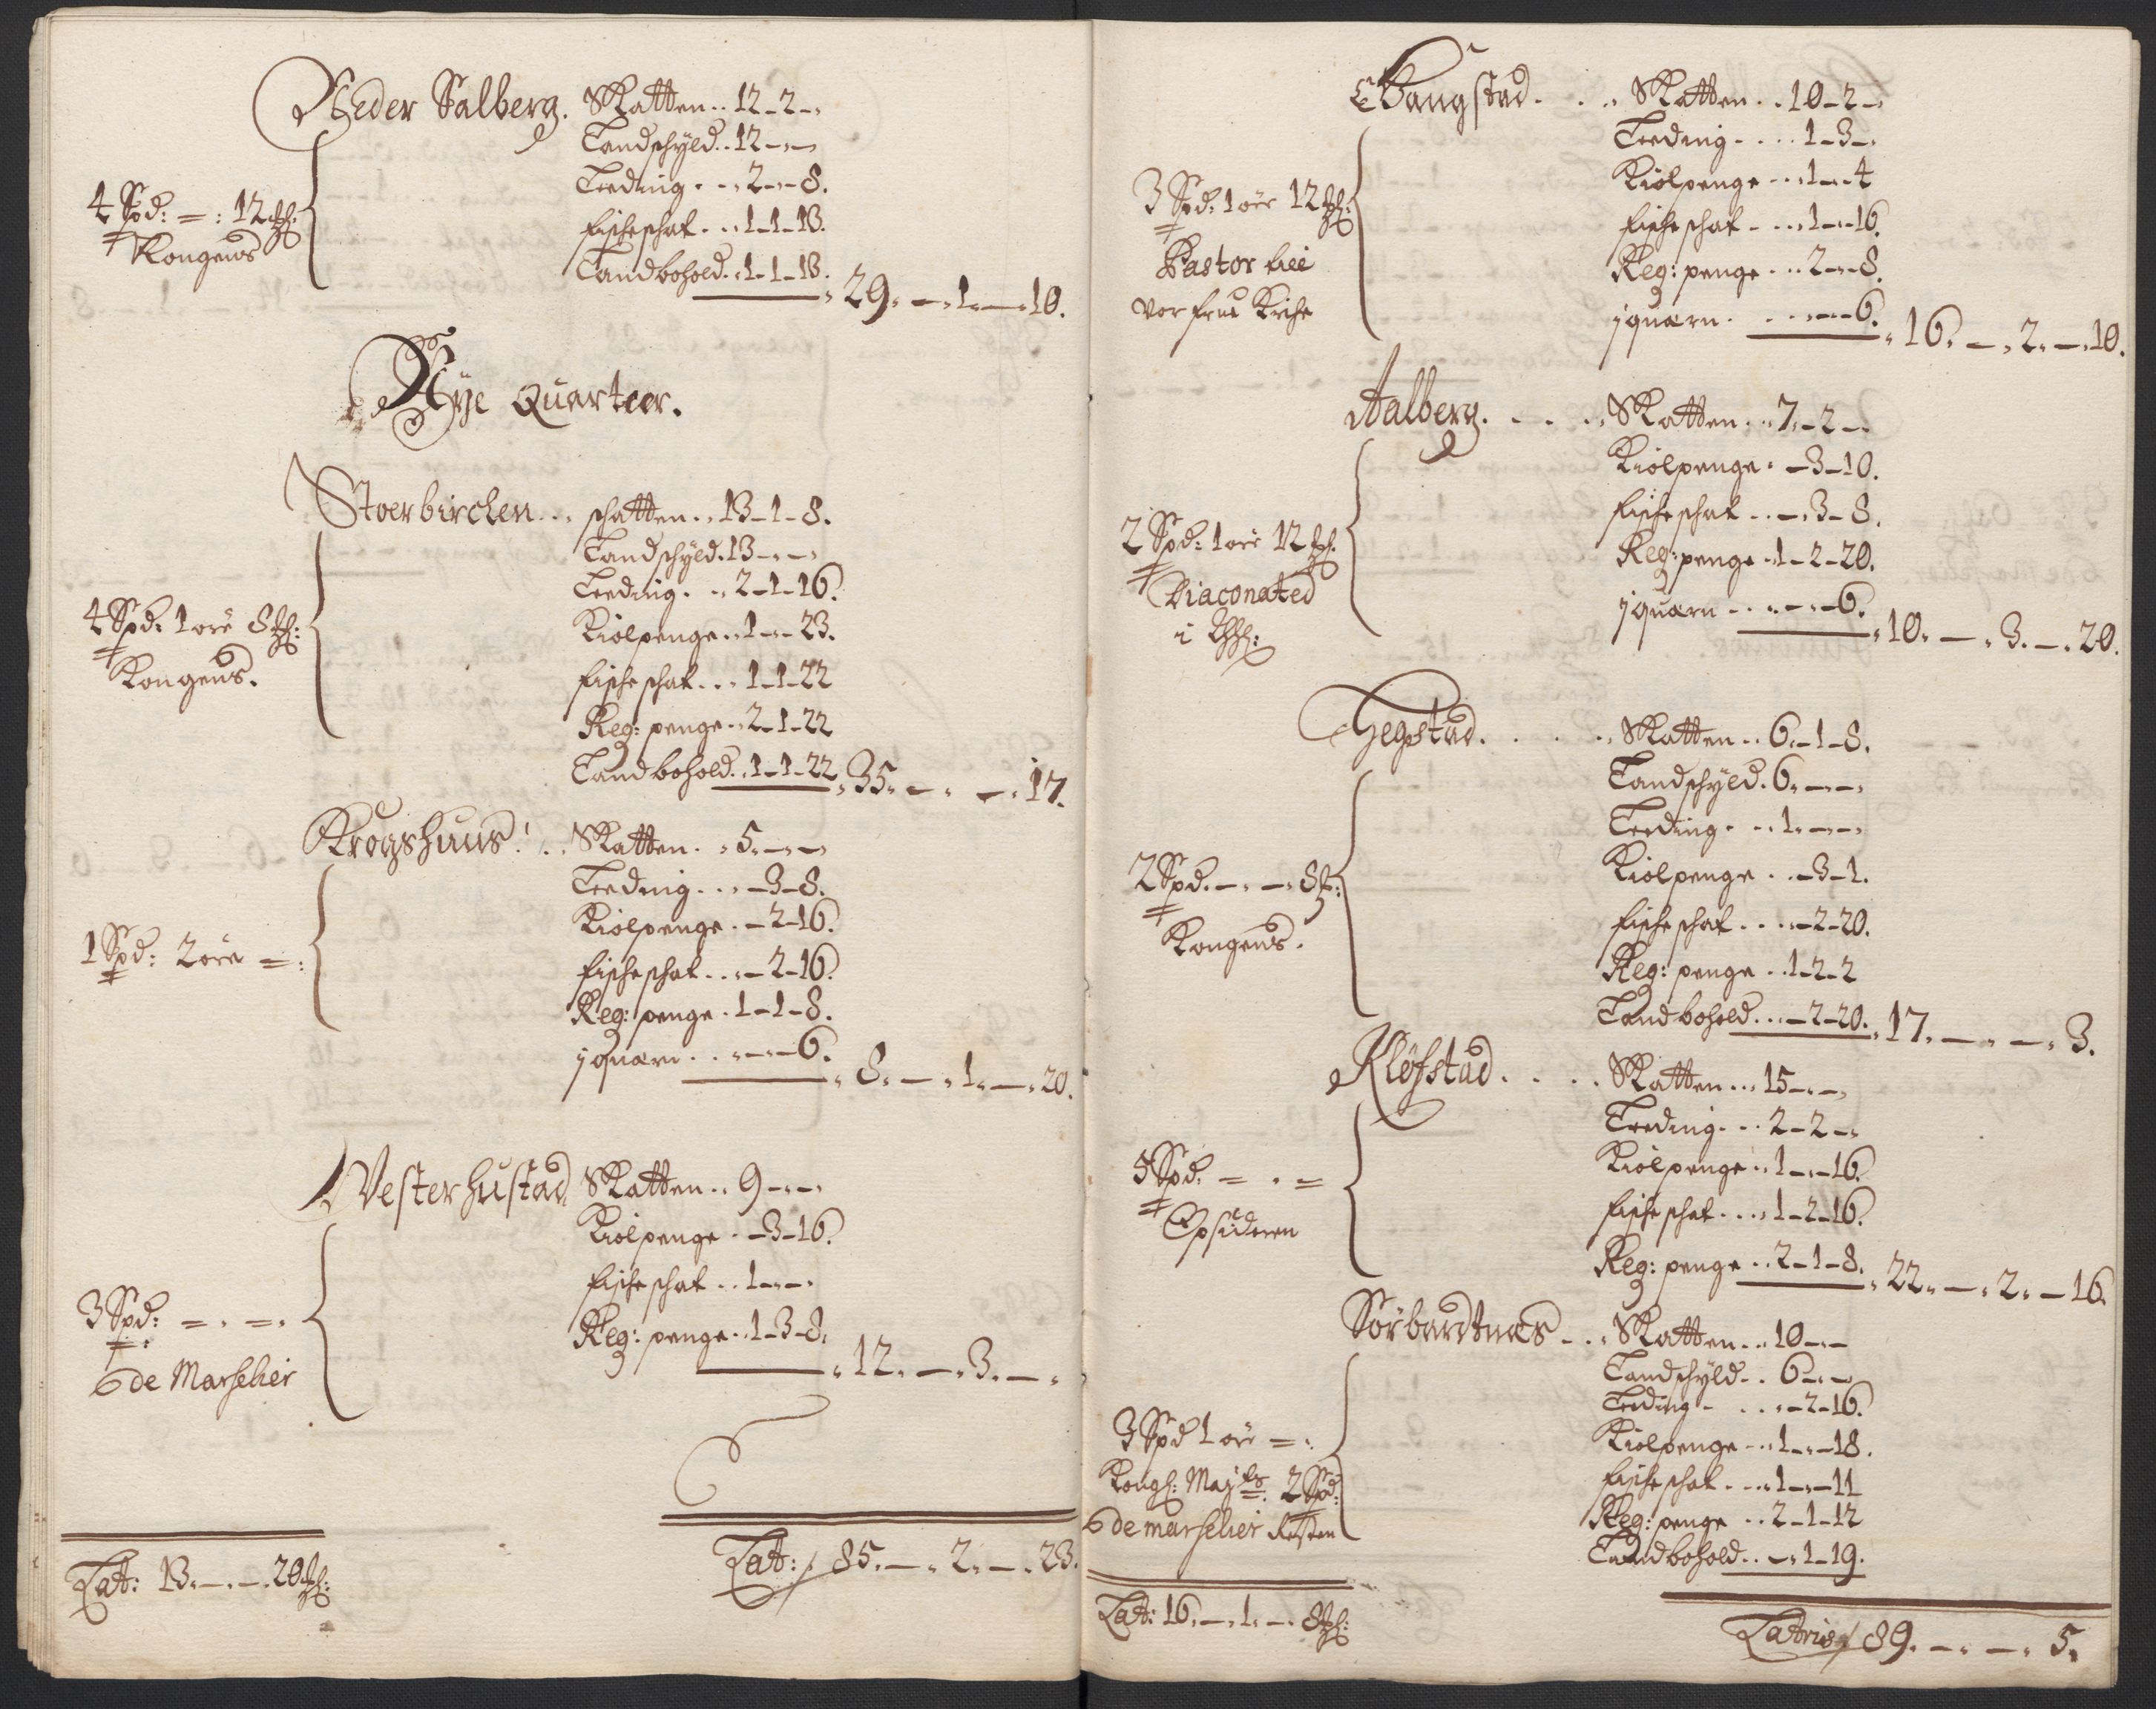 Neder Salberg. Skatten .. 12 - 2 - „
Landschyld .. 12 - „ -
Leeding . . „ 2 - „ - 8.
fischeschat . . „ 1 - 1 - 13.
Landbohold .. 1 - 1 - 13. „ 29. - „ 1. - „ 10.
4 Spd: = : 12 ʒ:
Kongens
Nÿe Quarteer.
Stoerbirchen . . . schatten . . 13 - 1 - 8.
Landschÿld. 13 - „ - „
Leeding . . „ 2 - 1 - 16.
Kiolpenge . . 1 - „ - 23.
fischeschat . . . 1 - 1 - 22
Reg: penge . . 2 - 1 - 22
Landbohold . . 1 - 1 - 22 „ 35. - „ - „ 17.
4 Spd: 1 ore 8 ʒ:
Kongens.
Krogshuus! . . Skatten . „ 5. - „ - „
Leeding . . „ - 3 - 8.
Kiolpenge . - 2 - 16.
fischeschat . . „ - 2 - 16.
Reg: penge . 1 - 1 - 8.
jquærn . . „ - „ - 6. „ 8. - „ 1. - „ 20.
1 Spd: 2 öre = :
Vesterhustad Skatten . . 9 - „ - „
Kiolpenge . - 3 - 16.
fischeschat . . 1 - „ - „
Reg: penge . . 1 - 3 - 8. „ 12. - „ 3. - „
3 Spd: = . = .
de Marselier
Lat: 13. - . - . 20 ʒ:
Lat: / 85. - „ 2. - „ 23.
Vangstad . . „ Skatten . . 10 - 2 - „
Leeding - . . . 1 - 3 - „
Kiolpenge . . „ 1 - „ - 4
fischeschat - . . „ 1 - „ - 16.
Reg: penge . . 2 - „ - 8.
jquærn . . . „ - „ - 6. „ 16. - „ 2. - „ 10.
3 Spd: 1 ore 12 ʒ:
Pastor
Vor frue Kirche
Aalberg. . . . Skatten . . „ 7. - 2 - „
Kiolpenge . - 3 - 10.
fischeschat . . - „ 3 - 8.
Reg: penge . 1 - 2 - 20.
jquærn - . „ - „ - 6. „ 10. - „ 3. - „ 20.
2 Spd: 1 ore 12 ʒ:
Diaconated
i
Hegstad. . . . „ Skatten . . 6. - 1 - 8.
Landschÿld. 6. - „ - „
Leeding . . „ 1. - „ - „
Kiolpenge . . - 3 - 1.
fischeschat . . . „ - 2 - 20.
Reg: penge . . 1 - 2 - 2
Landbohold . . . - 2 - 20. „ 17. - „ - „ 3.
2 Spd. - . - . 8 ʒ:
Kongens.
Kløfstad . . . . Skatten . . . 15 - „ - „
Leeding . . . 2 - 2 - „
Kiolpenge . . 1 - „ - 16.
fischeschat . . . „ 1 - 2 - 16.
Reg: penge . . 2 - 1 - 8. „ 22. - „ 2. - 16.
5 Spd. = . =
Opsideren
Sörbardtnæs - . . „ Skatten . . . 10 - „ -
Landschÿld . . 6 - „ - „
Leeding - . . . „ - 2 - 16.
Kiolpenge . . . 1 - „ - 18.
fischeschat . . . „ 1 - „ - 11
Reg: penge . . 2 - 1 - 12
Landbohold . . - „ 1 - 19.
3 Spd 1 ore = :
Kongl: Maytz 2 Spd:
de marselier Resten
Lat: 16. - „ 1. - „ 8 ʒ:
Lateris / 89. - „ - „ 5.